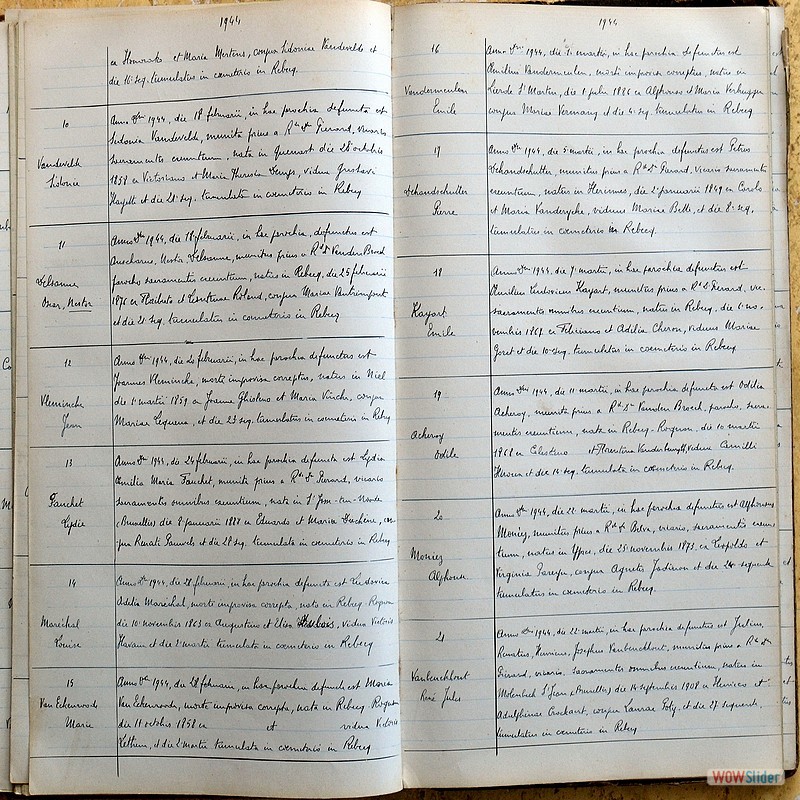 1944
ex Honorato et Maria Mertens, conjux Sidoniae Vandevelde et
die 16 seq. tumulatus in coemeterio in Rebecq.
10
Vandevelde
Sidonie
Anno Dni 1944, die 18 februarii, in hac parochia defuncta est
Sidonia Vandevelde, munita prius a Rdo Do Pierard, vicario
sacramentis exeuntium, nata in Quenast die 28 octobris
1858 ex Victoriano et Maria Theresia Denys, vidua Gustavi
Hayette et die 21 seq. tumulata in coemeterio in Rebecq
11
Delsanne
Oscar, Nestor
Anno Dni 1944, die 18 februarii, in hac parochia, defunctus est
Oscharus, Nestor Delsanne, munitus prius a Rdo Do Vanden Broeck
parocho sacramentis exeuntium, natus in Rebecq, die 25 februarii
1876 ex Philiberto et Leontina Roland, conjux Mariae Vantrimpont
et die 21 seq. tumulatus in coemeterio in Rebecq
12
Vleminckx
Jean
Anno Dni 1944, die 20 februarii, in hac parochia defunctus est
Joannes Vleminckx, morte improvisa correptus, natus in Niel
die 1 martii 1859 ex Joanne Ghisleno et Maria Vinckx, conjux
Mariae Cequena, et die 23 seq. tumulatus in coemeterio in Rebecq
13
Fauchet
Lydie
Anno Dni 1944, die 24 februarii, in hac parochia defuncta est Lydia
Aemilia Maria Fauchet, munita prius a Rdo Do Pierard, vicario
sacramentis omnibus exeuntium, nata in St Josse-ten-Noode
(Bruxelles) die 8 januarii 1888 ex Eduardo et Maria Duchêne, con-
jux Renati Pauwels et die 28 seq. tumulata in coemeterio in Rebecq
14
Maréchal
Louise
Anno Dni 1944, die 28 februarii, in hac parochia defuncta est Ludovica
Adelia Maréchal, morte improvisa correpta, nata in Rebecq-Rognon
die 10 novembris 1863 ex Augustino et Elisa Dubois, vidua Victoris
Havaux et die 2 martii tumulata in coemeterio in Rebecq
15
Van Eckenrode
Marie
Anno Dni 1944, die 28 februarii, in hac parochia defuncta est Maria
Van Eckenroode, morte improvisa correpta, nata in Rebecq Rognon
die 11 octobris 1858 ex et vidua Victoris
et die 2 martii tumulata in coemeterio in Rebecq
1944
16
Vandermeulen
Emile
Anno Dni 1944, die 1 martii, in hac parochia defunctus est
Aemilius Vandermeulen, morte improvisa correptus, natus in
Lierde St Martin, die 1 julii 1886 ex Alphonso et Maria Verbruggen
conjux Mariae Vermany et die 4 seq. tumulatus in Rebecq
17
Dehandschutter
Pierre
Anno Dni 1944, die 5 martii, in hac parochia defunctus est Petrus
Dehandschutter, munitus prius a Rdo Do Pierard, vicario sacramentis
exeuntium, natus in Herinnes, die 2 januarii 1849 ex Carolo
et Maria Vanderycke, viduus Mariae Bette, et die 8 seq.
tumulatus in coemeterio in Rebecq.
18
Hayart
Emile
Anno Dni 1944, die 7 martii, in hac parochia defunctus est
Aemilius Ludovicus Hayart, munitus prius a Rdo Do Pierard, vic.
sacramentis omnibus exeuntium, natus in Rebecq, die 6 no-
vembris 1867 ex Feliciano et Adelia Cheron, viduus Mariae
Goret et die 10 seq. tumulatus in coemeterio in Rebecq.
19
Acheroy
Odile
Anno Dni 1944, die 11 martii, in hac parochia defuncta est Odilia
Acheroy, munita prius a Rdo Do Vanden Broeck, parocho, sacra-
mentis exeuntium, nata in Rebecq-Rognon, die 10 martii
1868 ex Celestino et Florentina Vanderburght, vidua Camilli
et die 14 seq. tumulata in coemeterio in Rebecq.
20
Moniez
Alphonse
Anno Dni 1944, die 21 martii, in hac parochia defunctus est Alphonsus
Moniez, munitus prius a Rdo Do Belva, vicario, sacramentis exeun-
tium, natus in Ypres, die 25 novembris 1873 ex Leopoldo et
Virginia conjux Agnetis et die 24 sequente
tumulatus in coemeterio in Rebecq.
21
Vanbeuckhout
René Jules
Anno Dni 1944, die 22 martii, in hac parochia defunctus est Julius,
Renatus, Henricus, Josephus Vanbeuckhout, munitus prius a Rdo Do
Pierard, vicario, sacramentis omnibus exeuntium, natus in
Molenbeek St Jean (Bruxelles) die 14 septembris 1908 ex Henrico et
Adulphina Crockart, conjux Laurae Poty, et die 27 sequenti
tumulatus in coemeterio in Rebecq
WOWSlider